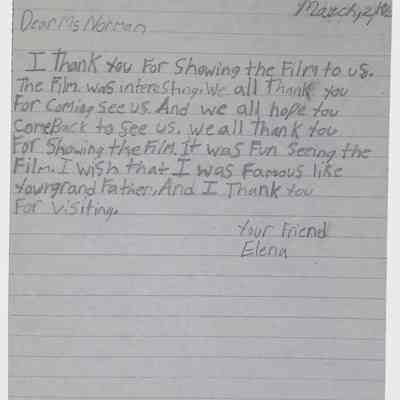 March, 2,
Dear Ms Norman
I Thank you For Showing the Film to us.
The Film was interesting. We all Thank you
For Coming see us. And we all hope you
ComeBack to see us. we all Thank you
For Showing the Film. It was Fun Seeing the
Film. I wish that I was Famous like
Yourgrand Father, And I Thank you
For visiting.
Your Friend
Elena